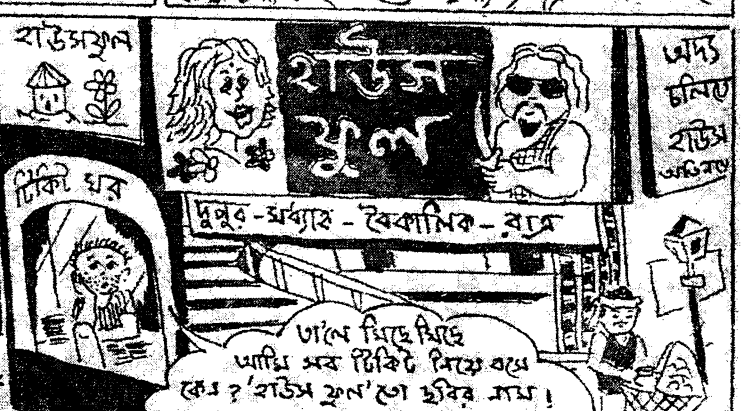 হাউসফুল
হাউস
ফুল
অদ্য
চলিতে
হাউস
টিকিট ঘর
দুপুর - মধ্যাহ্ন - বৈকালিক - রাত্র
তা'লে মিছে মিছে
আমি সব টিকিট নিয়ে বসে
কেন? 'হাউস ফুল' তো ছবির নাম!